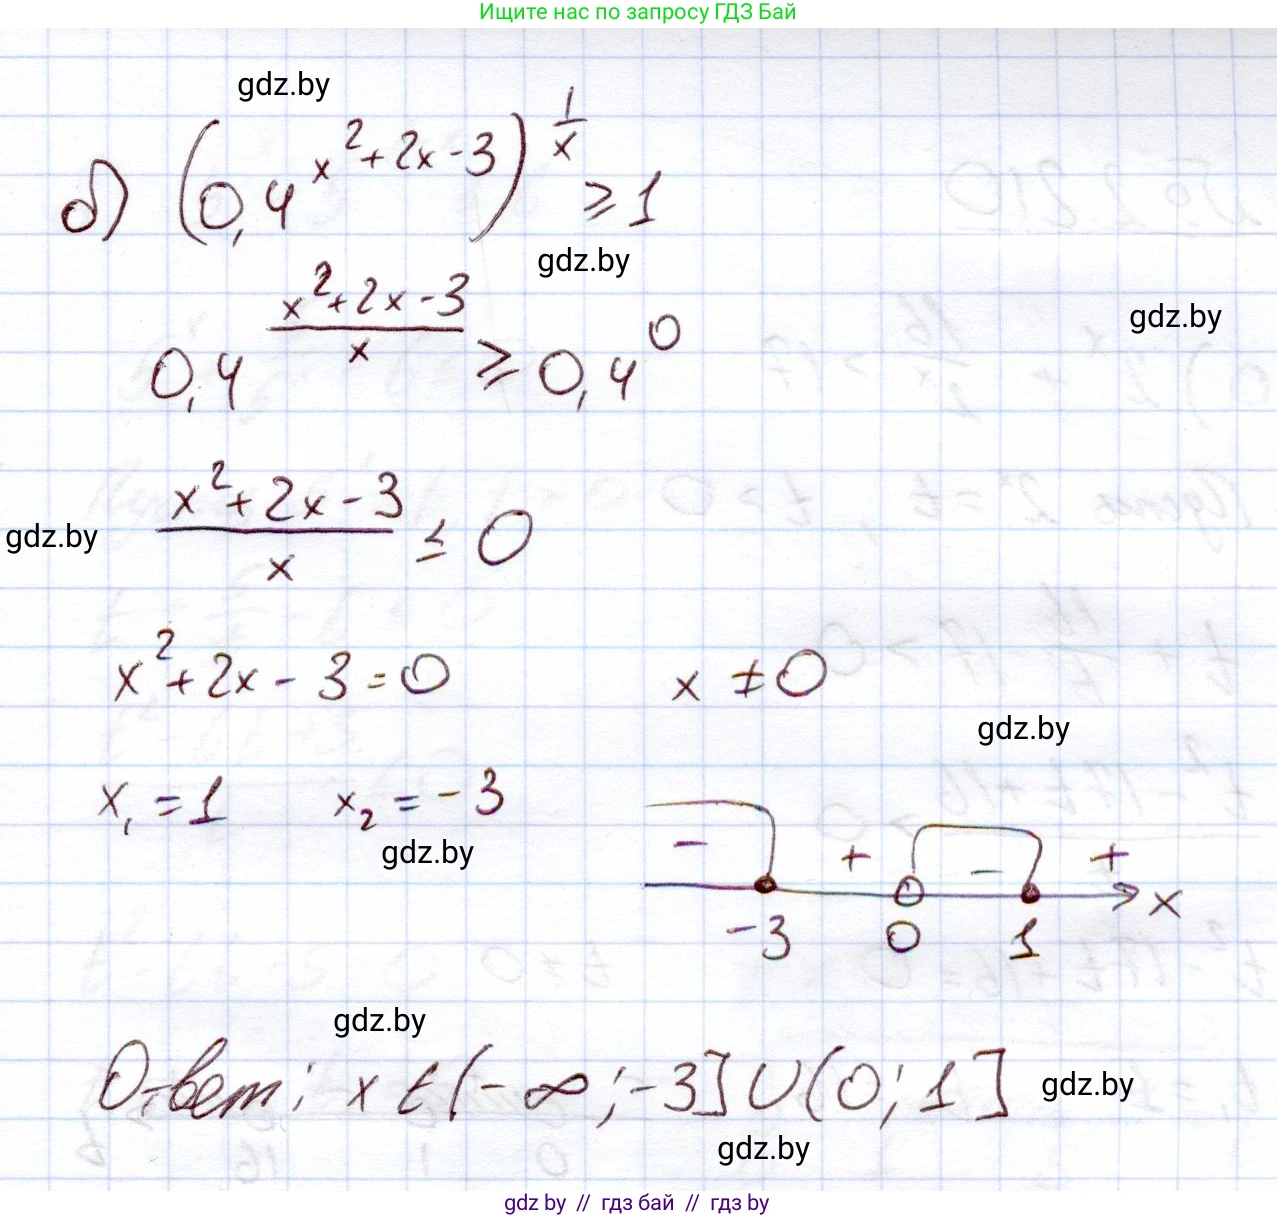 Ищите нас по запросу ГДЗ Бай
gdz.by
б) (0,4^(x²+2x-3))^(1/x) ≥ 1
gdz.by
0,4^((x²+2x-3)/x) ≥ 0,4^0
gdz.by
(x²+2x-3)/x ≤ 0
gdz.by
x²+2x-3=0 x ≠ 0
gdz.by
x₁=1 x₂=-3
gdz.by
- + - +
-3 0 1 x
gdz.by
Ответ: x ∈ (-∞;-3]∪(0;1]
gdz.by
gdz.by
gdz by // гдз бай // гдз by